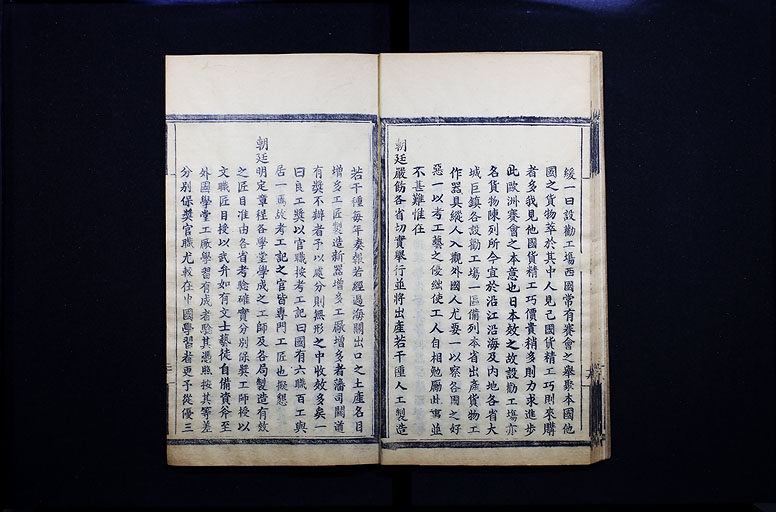 緩一曰設勸工場西國常有賽會之舉聚本國他
國之貨物萃於其中人見己國貨精工巧則來購
者多我見他國貨精工巧價貴稍多則力求進步
此歐洲賽會之本意也日本效之故設勸工場亦
名貨物陳列所今宜於沿江沿海及內地各省大
城巨鎮各設勸工場一區備列本省出產貨物工
作器具縱人入觀外國人尤要一以察各國之好
惡一以考工藝之優絀使工人自相勉厲此事並
不甚難惟在
朝廷嚴飭各省切實舉行並將出產若干種人工製造
若干種每年奏報若經過海關出口之土產名目
增多工匠製造新器增多工廠增多者藩司關道
有獎不辦者予以處分則無形之中收效多矣一
曰良工獎以官職按考工記曰國有六職百工與
居一焉故考工記之官皆專門工匠也擬懇
朝廷明定章程各學堂學成之工師及各局製造有效
之匠目准由各省考驗確實分別保獎工師授以
文職匠目授以武弁如有文士藝徒自備資斧至
外國學堂工廠學習有成者驗其憑照按其等差
分別保獎官職尤較在中國學習者更予從優三